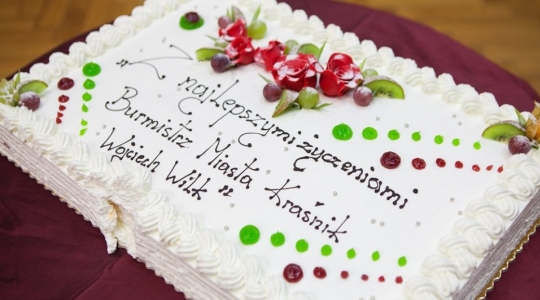 „Z
najlepszymi życzeniami
Burmistrz Miasta Kraśnik
Wojciech Wilk"